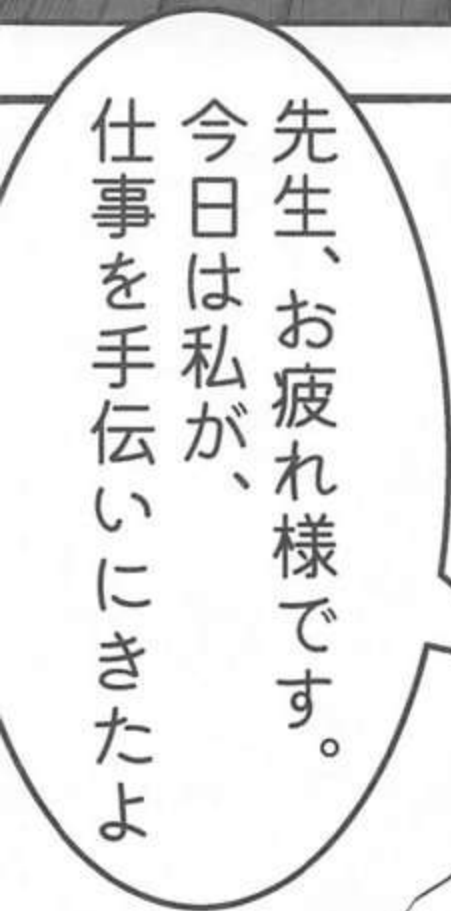 先生、お疲れ様です。
今日は私が、
仕事を手伝いにきたよ